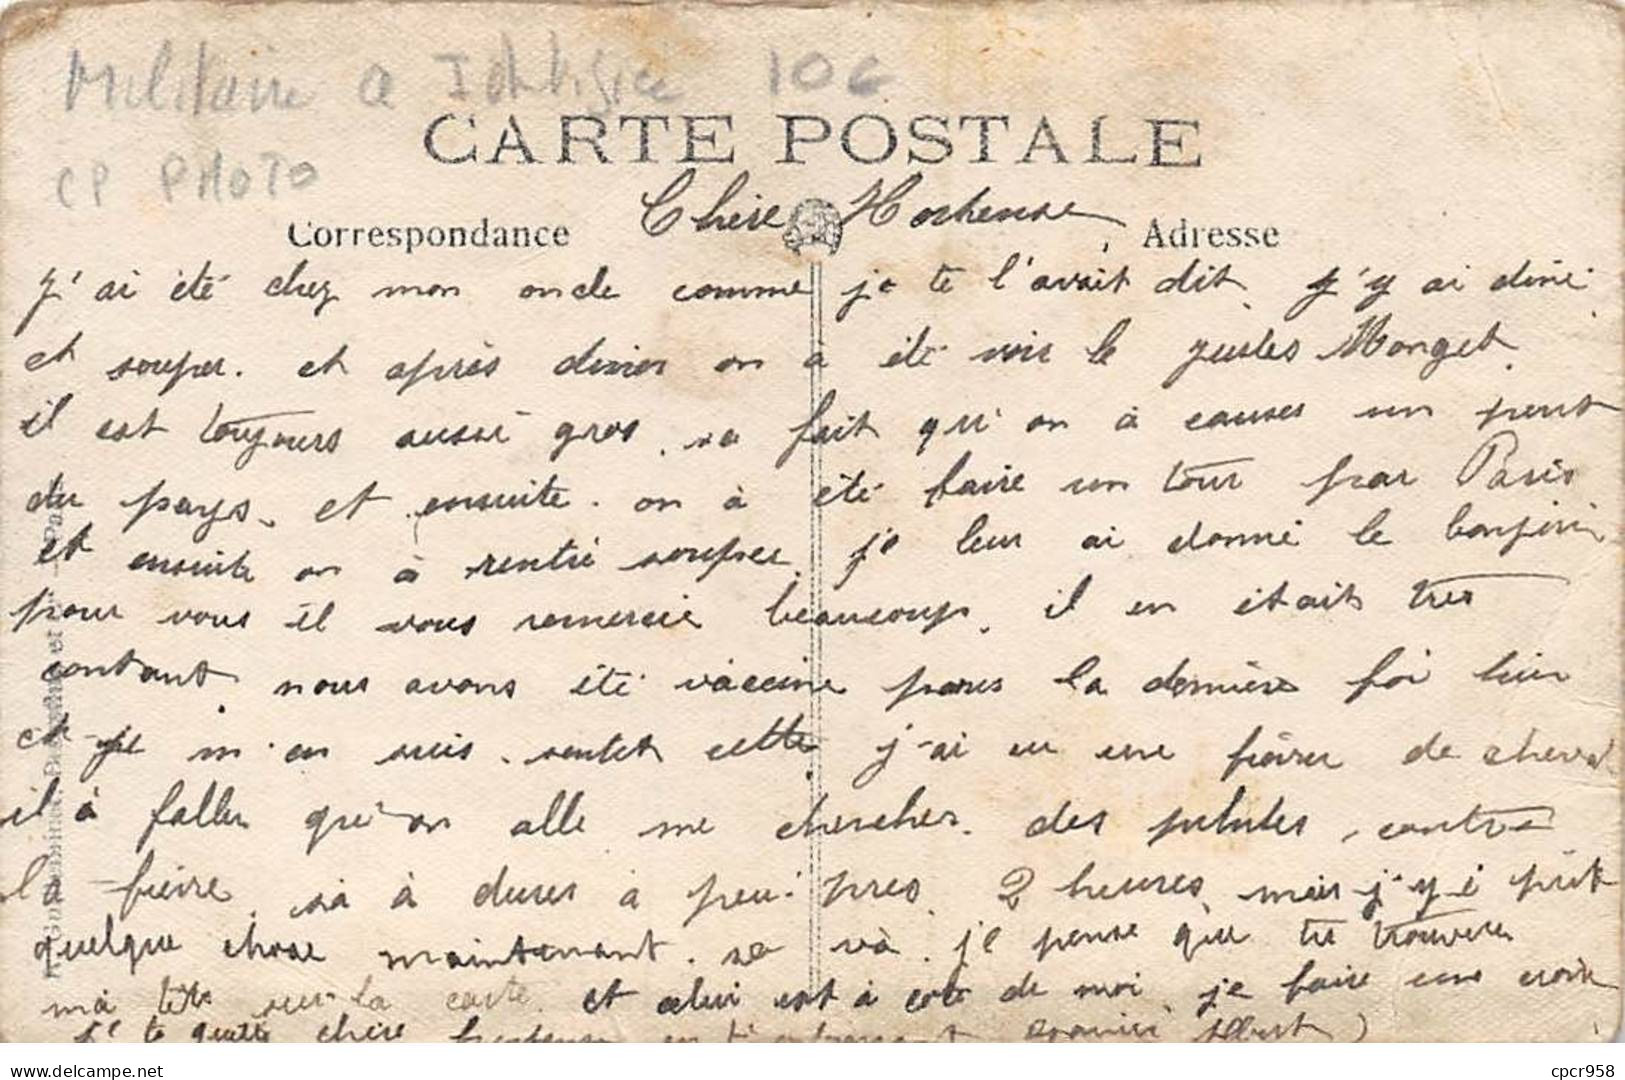 Militaire a Identifier 106
CARTE POSTALE
CP PHOTO
Chere Hortense
Correspondance
Adresse
j'ai été chez mon oncle comme je te l'avait dit. j'y ai diné
et souper. et après diner on à été voir le jules Monget.
il est toujours aussi gros. sa fait qu'on à causer un peut
du pays. et ensuite. on à été faire un tour par Paris
et ensuite on à rentré souper. je leur ai donné le bonjour
pour vous il vous remercie beaucoup. il en était tres
contant. nous avons été vacciné pour la dernière foi hier
et je m'en suis. sentet cette j'ai eu une fièvre de cheval
il à faller qu'on alle me chercher. des pilules contre
la fièvre. sa à durer à peu près 2 heures mais j'y é prit
quelque chose maintenant. sa và. je pense que tu trouveras
mà tête sur la carte. et celui est à coté de moi. je faire une croix
je te quitte chère hortense en t'embrassant Albert
cpcr958